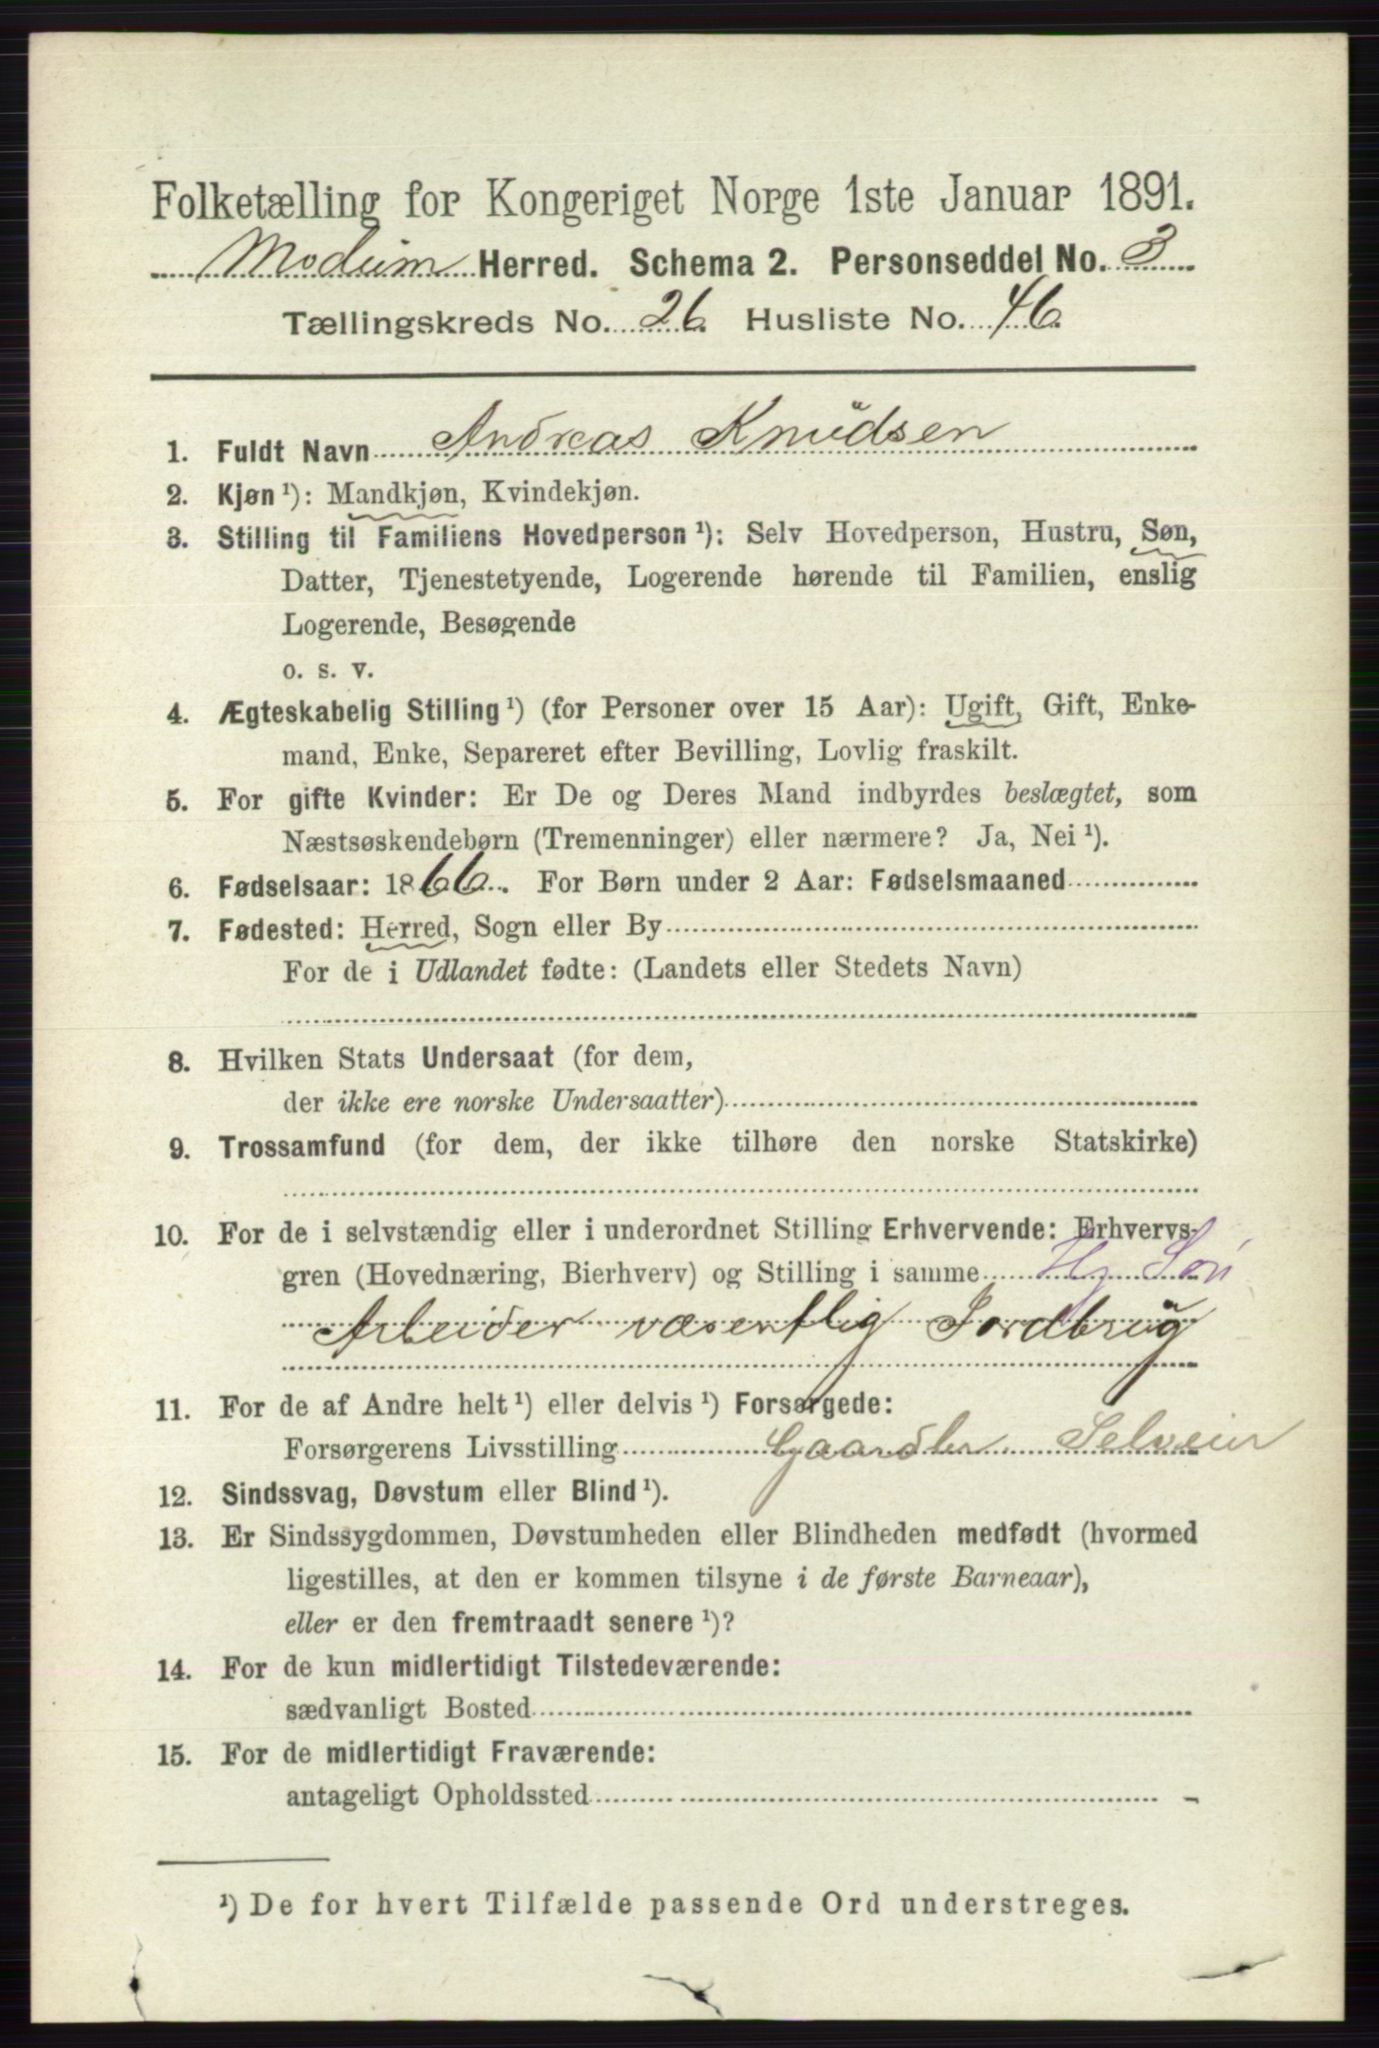 Folketælling for Kongeriget Norge 1ste Januar 1891.
Modum Herred. Schema 2. Personseddel No. 3
Tællingskreds No. 26. Husliste No. 46.
1. Fuldt Navn Andreas Knudsen
2. Kjøn¹): Mandkjøn, Kvindekjøn.
3. Stilling til Familiens Hovedperson¹): Selv Hovedperson, Hustru, Søn,
Datter, Tjenestetyende, Logerende hørende til Familien, enslig
Logerende, Besøgende
o. s. v.
4. Ægteskabelig Stilling¹) (for Personer over 15 Aar): Ugift, Gift, Enke-
mand, Enke, Separeret efter Bevilling, Lovlig fraskilt.
5. For gifte Kvinder: Er De og Deres Mand indbyrdes beslægtet, som
Næstsøskendebørn (Tremenninger) eller nærmere? Ja, Nei¹).
6. Fødselsaar: 1866. For Børn under 2 Aar: Fødselsmaaned
7. Fødested: Herred, Sogn eller By
For de i Udlandet fødte: (Landets eller Stedets Navn)
8. Hvilken Stats Undersaat (for dem,
der ikke ere norske Undersaatter)
9. Trossamfund (for dem, der ikke tilhøre den norske Statskirke)
10. For de i selvstændig eller i underordnet Stilling Erhvervende: Erhvervs-
gren (Hovednæring, Bierhverv) og Stilling i samme Søn
Arbeider væsentlig Jordbrug
11. For de af Andre helt¹) eller delvis¹) Forsørgede:
Forsørgerens Livsstilling Gaardbr Selveier
12. Sindssvag, Døvstum eller Blind¹).
13. Er Sindssygdommen, Døvstumheden eller Blindheden medfødt (hvormed
ligestilles, at den er kommen tilsyne i de første Barneaar),
eller er den fremtraadt senere¹)?
14. For de kun midlertidigt Tilstedeværende:
sædvanligt Bosted
15. For de midlertidigt Fraværende:
antageligt Opholdssted
¹) De for hvert Tilfælde passende Ord understreges.